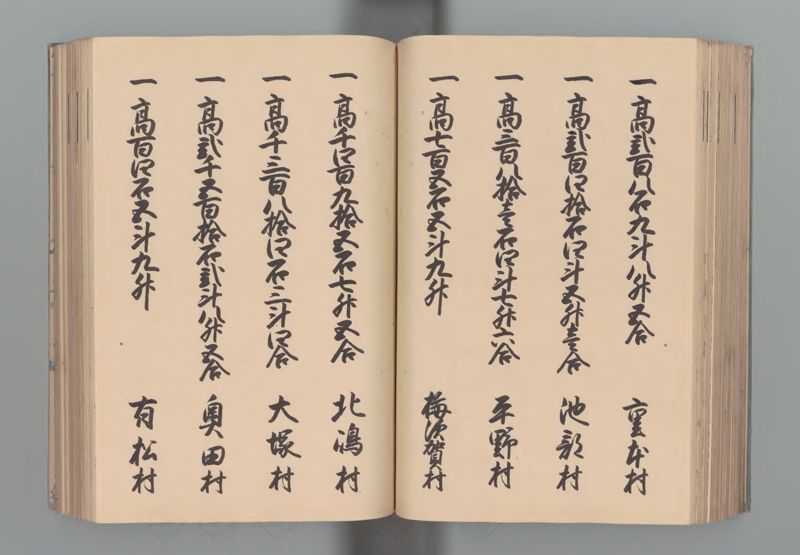 一高弐百八石九斗八升五合 裏本村
一高弐百四拾石四斗五升壱合 池部村
一高三百八拾壱石四斗七升六合 平野村
一高七百五石五斗九升 梅須賀村
一高千四百九拾五石七升五合 北嶋村
一高千三百八拾四石三斗四合 大塚村
一高弐千五百拾石弐斗八升五合 奥田村
一高百四石五斗九升 有松村